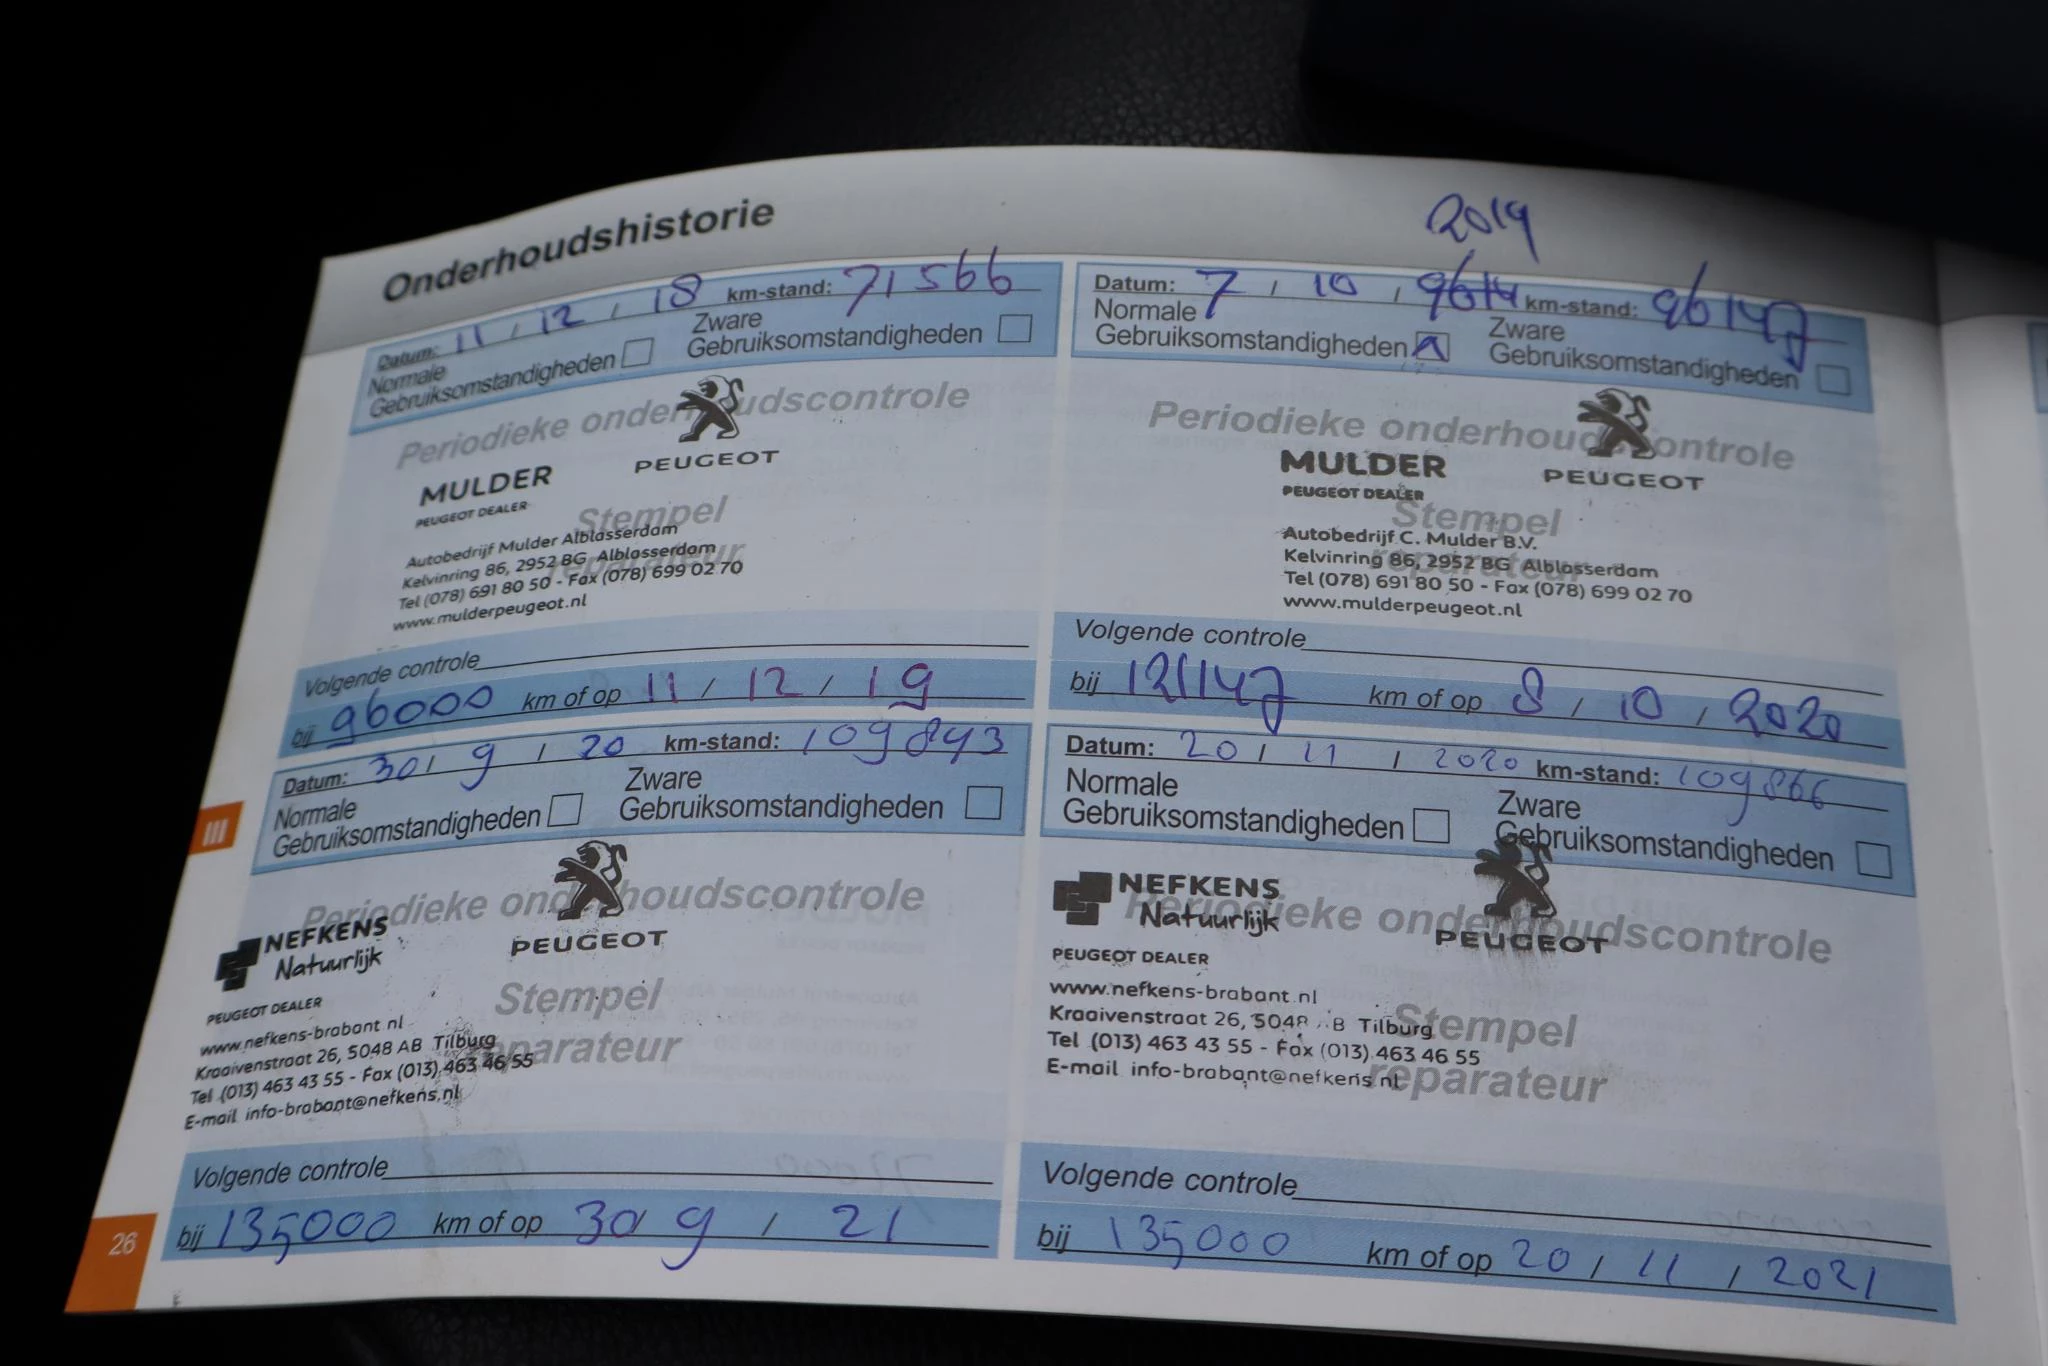 Onderhoudshistorie
2019
Datum: 11 / 12 / 18 km-stand: 71566
Normale
Gebruiksomstandigheden
Zware
Gebruiksomstandigheden
Periodieke onderhoudscontrole
PEUGEOT
MULDER
PEUGEOT DEALER
Stempel
reparateur
Autobedrijf Mulder Alblasserdam
Kelvinring 86, 2952 BG Alblasserdam
Tel (078) 691 80 50 - Fax (078) 699 02 70
www.mulderpeugeot.nl
Volgende controle
bij 96000 km of op 11 / 12 / 19
Datum: 7 / 10 / 9614 km-stand: 96147
Normale
Gebruiksomstandigheden
Zware
Gebruiksomstandigheden
Periodieke onderhoudscontrole
PEUGEOT
MULDER
PEUGEOT DEALER
Stempel
reparateur
Autobedrijf C. Mulder B.V.
Kelvinring 86, 2952 BG Alblasserdam
Tel (078) 691 80 50 - Fax (078) 699 02 70
www.mulderpeugeot.nl
Volgende controle
bij 121147 km of op 8 / 10 / 2020
Datum: 30 / 9 / 20 km-stand: 109843
Normale
Gebruiksomstandigheden
Zware
Gebruiksomstandigheden
Periodieke onderhoudscontrole
PEUGEOT
NEFKENS
Natuurlijk
PEUGEOT DEALER
Stempel
reparateur
www.nefkens-brabant nl
Kraaivenstraat 26, 5048 AB Tilburg
Tel (013) 463 43 55 - Fax (013) 463 46 55
E-mail info-brabant@nefkens.nl
Volgende controle
bij 135000 km of op 30 / 9 / 21
Datum: 20 / 11 / 2020 km-stand: 109866
Normale
Gebruiksomstandigheden
Zware
Gebruiksomstandigheden
Periodieke onderhoudscontrole
PEUGEOT
NEFKENS
Natuurlijk
PEUGEOT DEALER
Stempel
reparateur
www.nefkens-brabant.nl
Kraaivenstraat 26, 5048 B Tilburg
Tel (013) 463 43 55 - Fax (013) 463 46 55
E-mail info-brabant@nefkens.nl
Volgende controle
bij 135000 km of op 20 / 11 / 2021
III
26